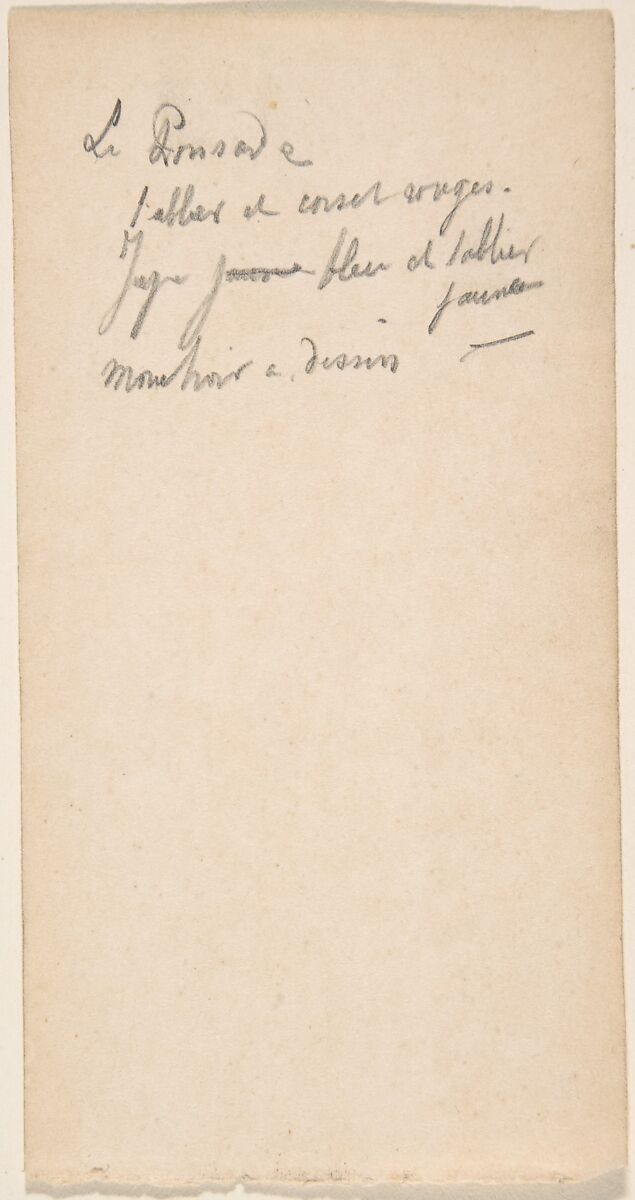 Le Ponsard e
Tablier et corset rouges.
Jupe jaune bleu et Tablier
jaune
Mouchoir a dessins